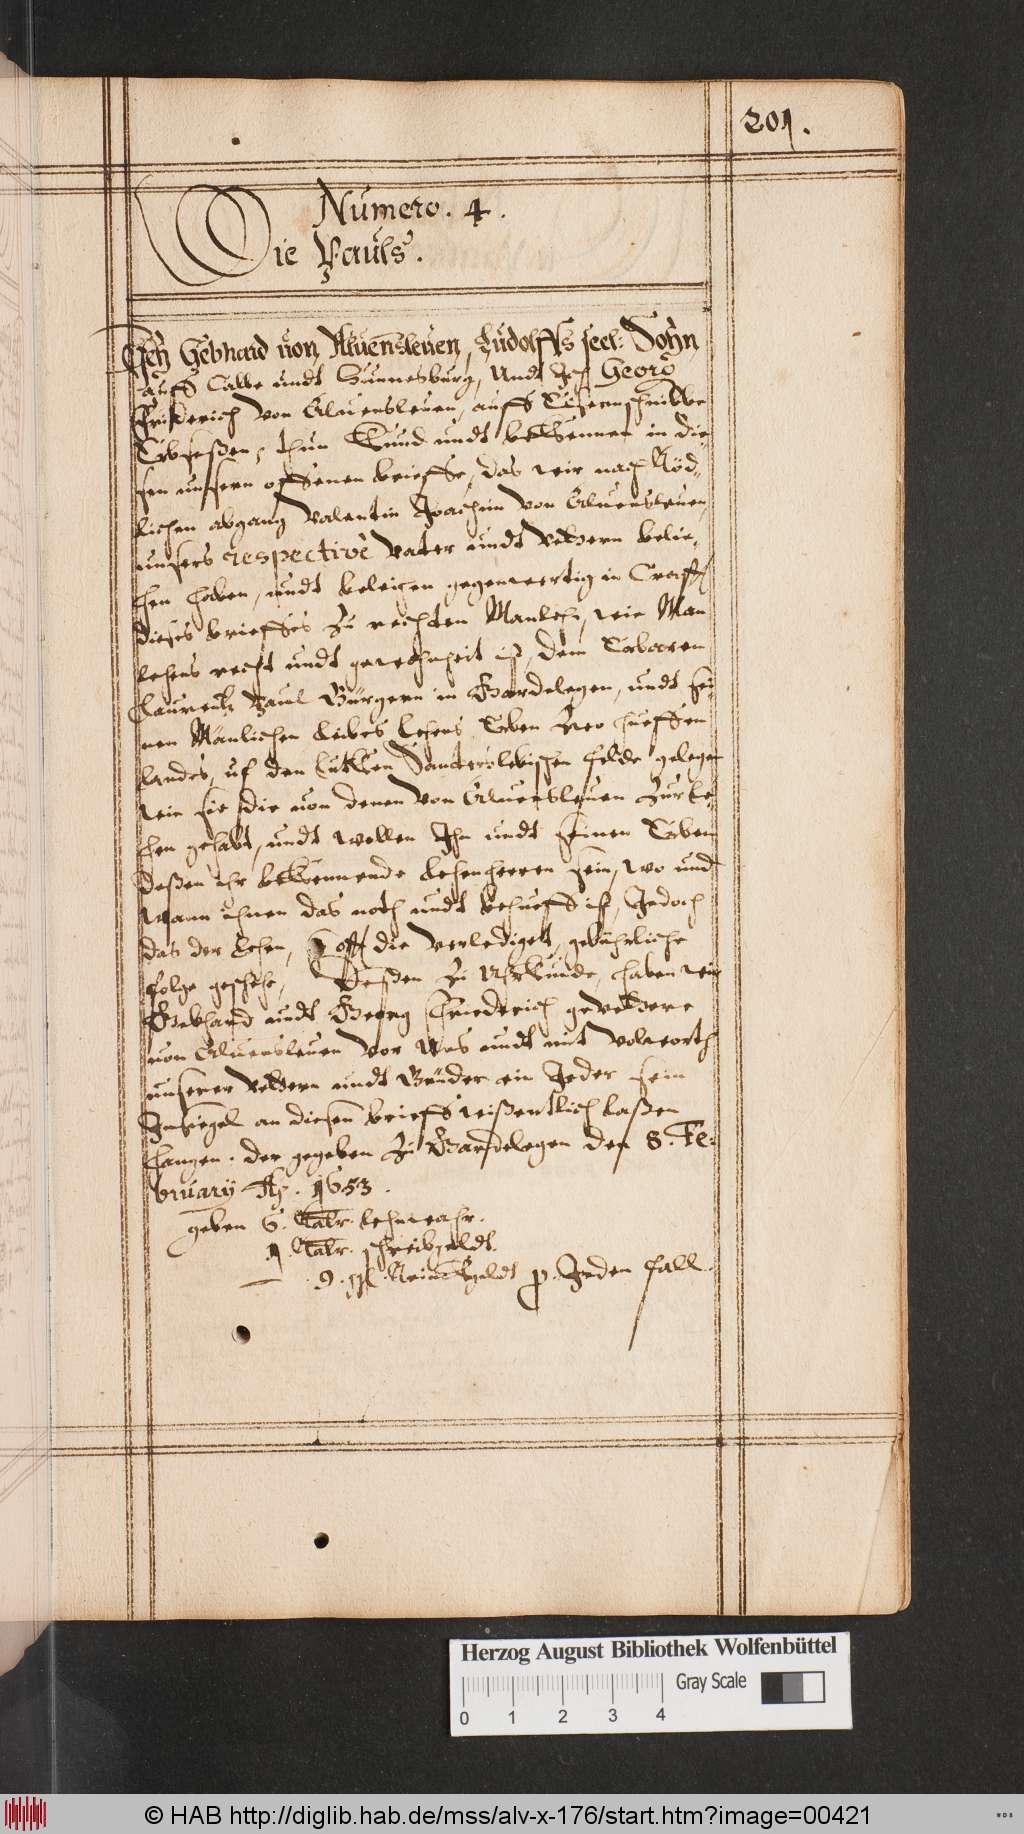 201.
Numero. 4.
Die Pauls.
Ich Gebhard von Alvensleven, Ludolffs seel: Sohn
auff Calbe undt Hunnesburg, Undt Ich Georg
Friderich von Alvensleven, auff Tschernschnibbe
Erbseßen, thun Kund undt bekennen in die-
sen unsern offenen brieffe, das wir nach Töd-
lichen abgang Valentin Joachim von Alvensleven
unsers respectivè Vater undt Vettern belie-
hen haben, undt beleihen gegenwertig in Crafft
dieses brieffes zu rechten Manlehn, wie Man
lehens recht undt gewohnheit ist, dem Erbaren
Laurentz Paul Bürgern in Gardelegen, undt sei-
nen Mänlichen leibes lehens Erben Zwo hueffen
landes, uf den lutken felde gelegen
wie sie die von denen von Alvensleven zur le-
hen gehabt, undt wollen Ihn undt seinen Erben
deßen ihr bekennende lehenherren sein, wo und
wann ihnen das noth undt behueff ist, Jedoch
das der lehen, so offt die verlediget, gebührliche
folge geschehe, Deßen zu Uhrkunde, haben wir
Gebhard undt Georg Friederich gevettere
von Alvensleven vor Uns undt mit volworth
unserer Vettern undt Brüder ein Jeder sein
Insiegel an diesen brieff wißentlich laßen
hangen. der gegeben zu Gardelegen den 8. Fe:
bruary Aõ. 1653.
geben 6. Talr. lehnwahr.
1. Talr. schreibgeldt.
9. gl. geldt p. Jeden fall.
Herzog August Bibliothek Wolfenbüttel
Gray Scale
0 1 2 3 4
© HAB http://diglib.hab.de/mss/alv-x-176/start.htm?image=00421